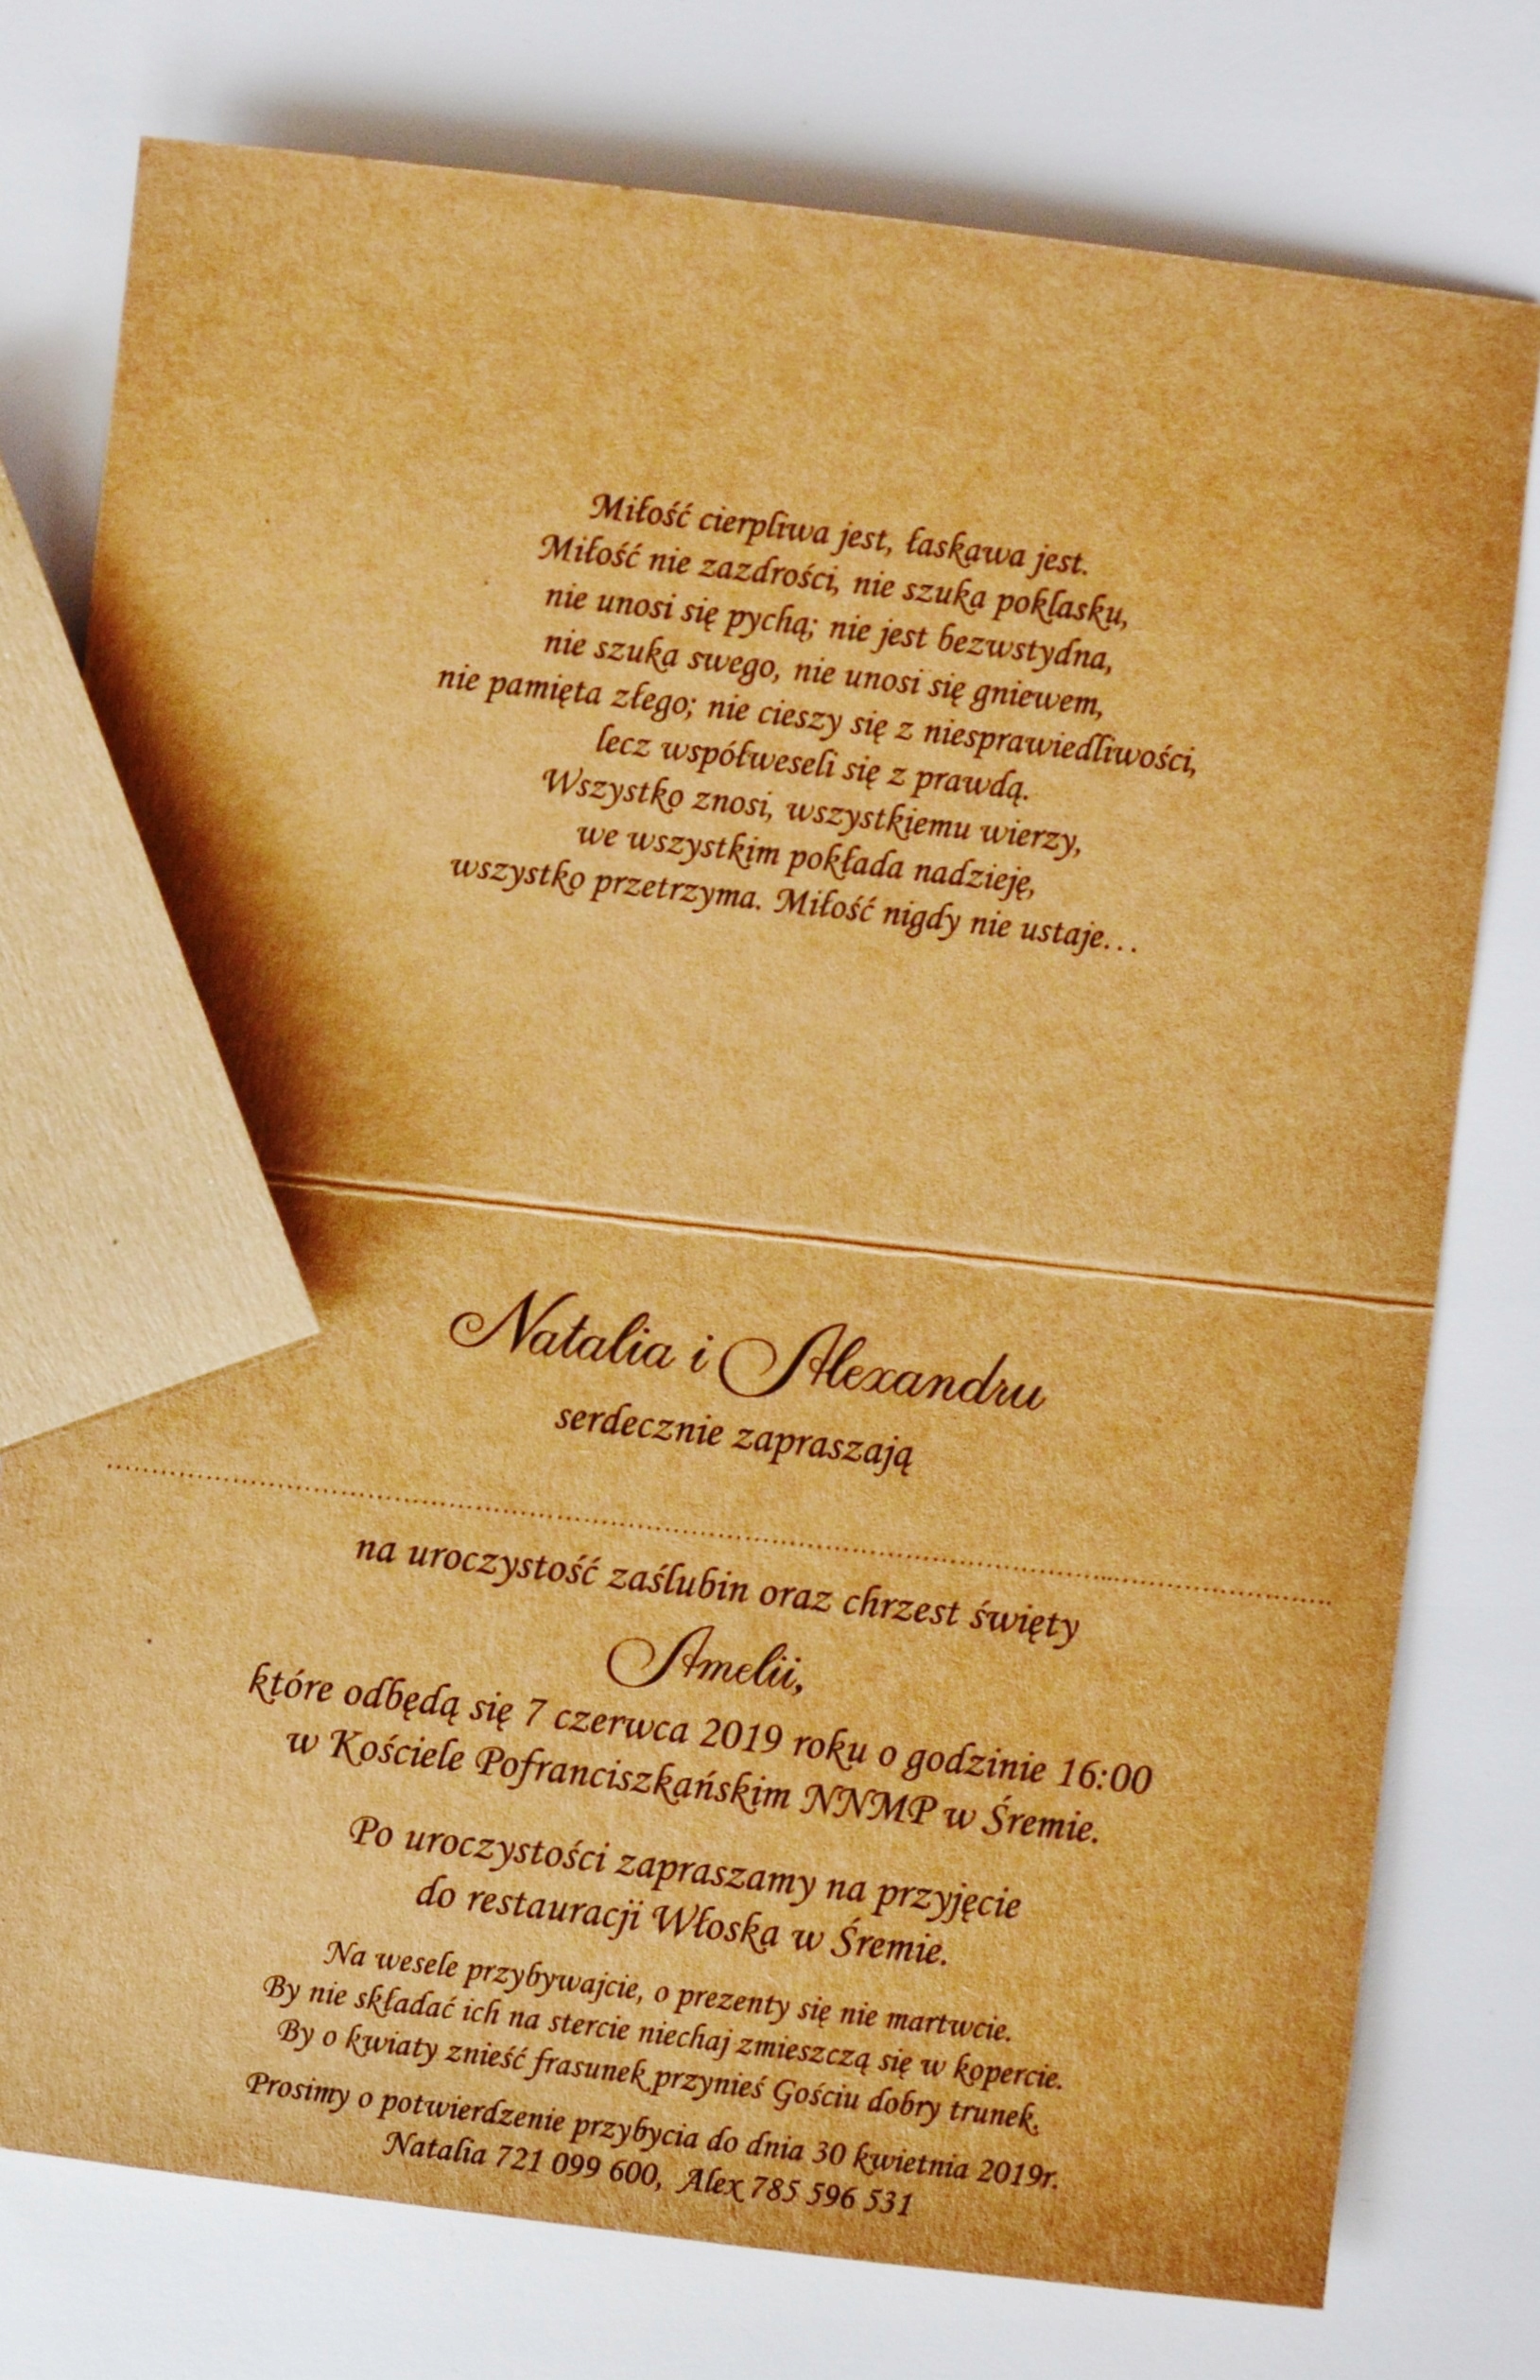 Miłość cierpliwa jest, łaskawa jest.
Miłość nie zazdrości, nie szuka poklasku,
nie unosi się pychą; nie jest bezwstydna,
nie szuka swego, nie unosi się gniewem,
nie pamięta złego; nie cieszy się z niesprawiedliwości,
lecz współweseli się z prawdą.
Wszystko znosi, wszystkiemu wierzy,
we wszystkim pokłada nadzieję,
wszystko przetrzyma. Miłość nigdy nie ustaje...
Natalia i Alexandru
serdecznie zapraszają
na uroczystość zaślubin oraz chrzest święty
Amelii,
które odbędą się 7 czerwca 2019 roku o godzinie 16:00
w Kościele Pofranciszkańskim NNMP w Śremie.
Po uroczystości zapraszamy na przyjęcie
do restauracji Włoska w Śremie.
Na wesele przybywajcie, o prezenty się nie martwcie.
By nie składać ich na stercie niechaj zmieszczą się w kopercie.
By o kwiaty znieść frasunek przynieś Gościu dobry trunek.
Prosimy o potwierdzenie przybycia do dnia 30 kwietnia 2019r.
Natalia 721 099 600, Alex 785 596 531